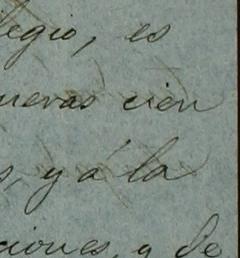 legio, es
nuevas cien
s, y á la
ciones, y de